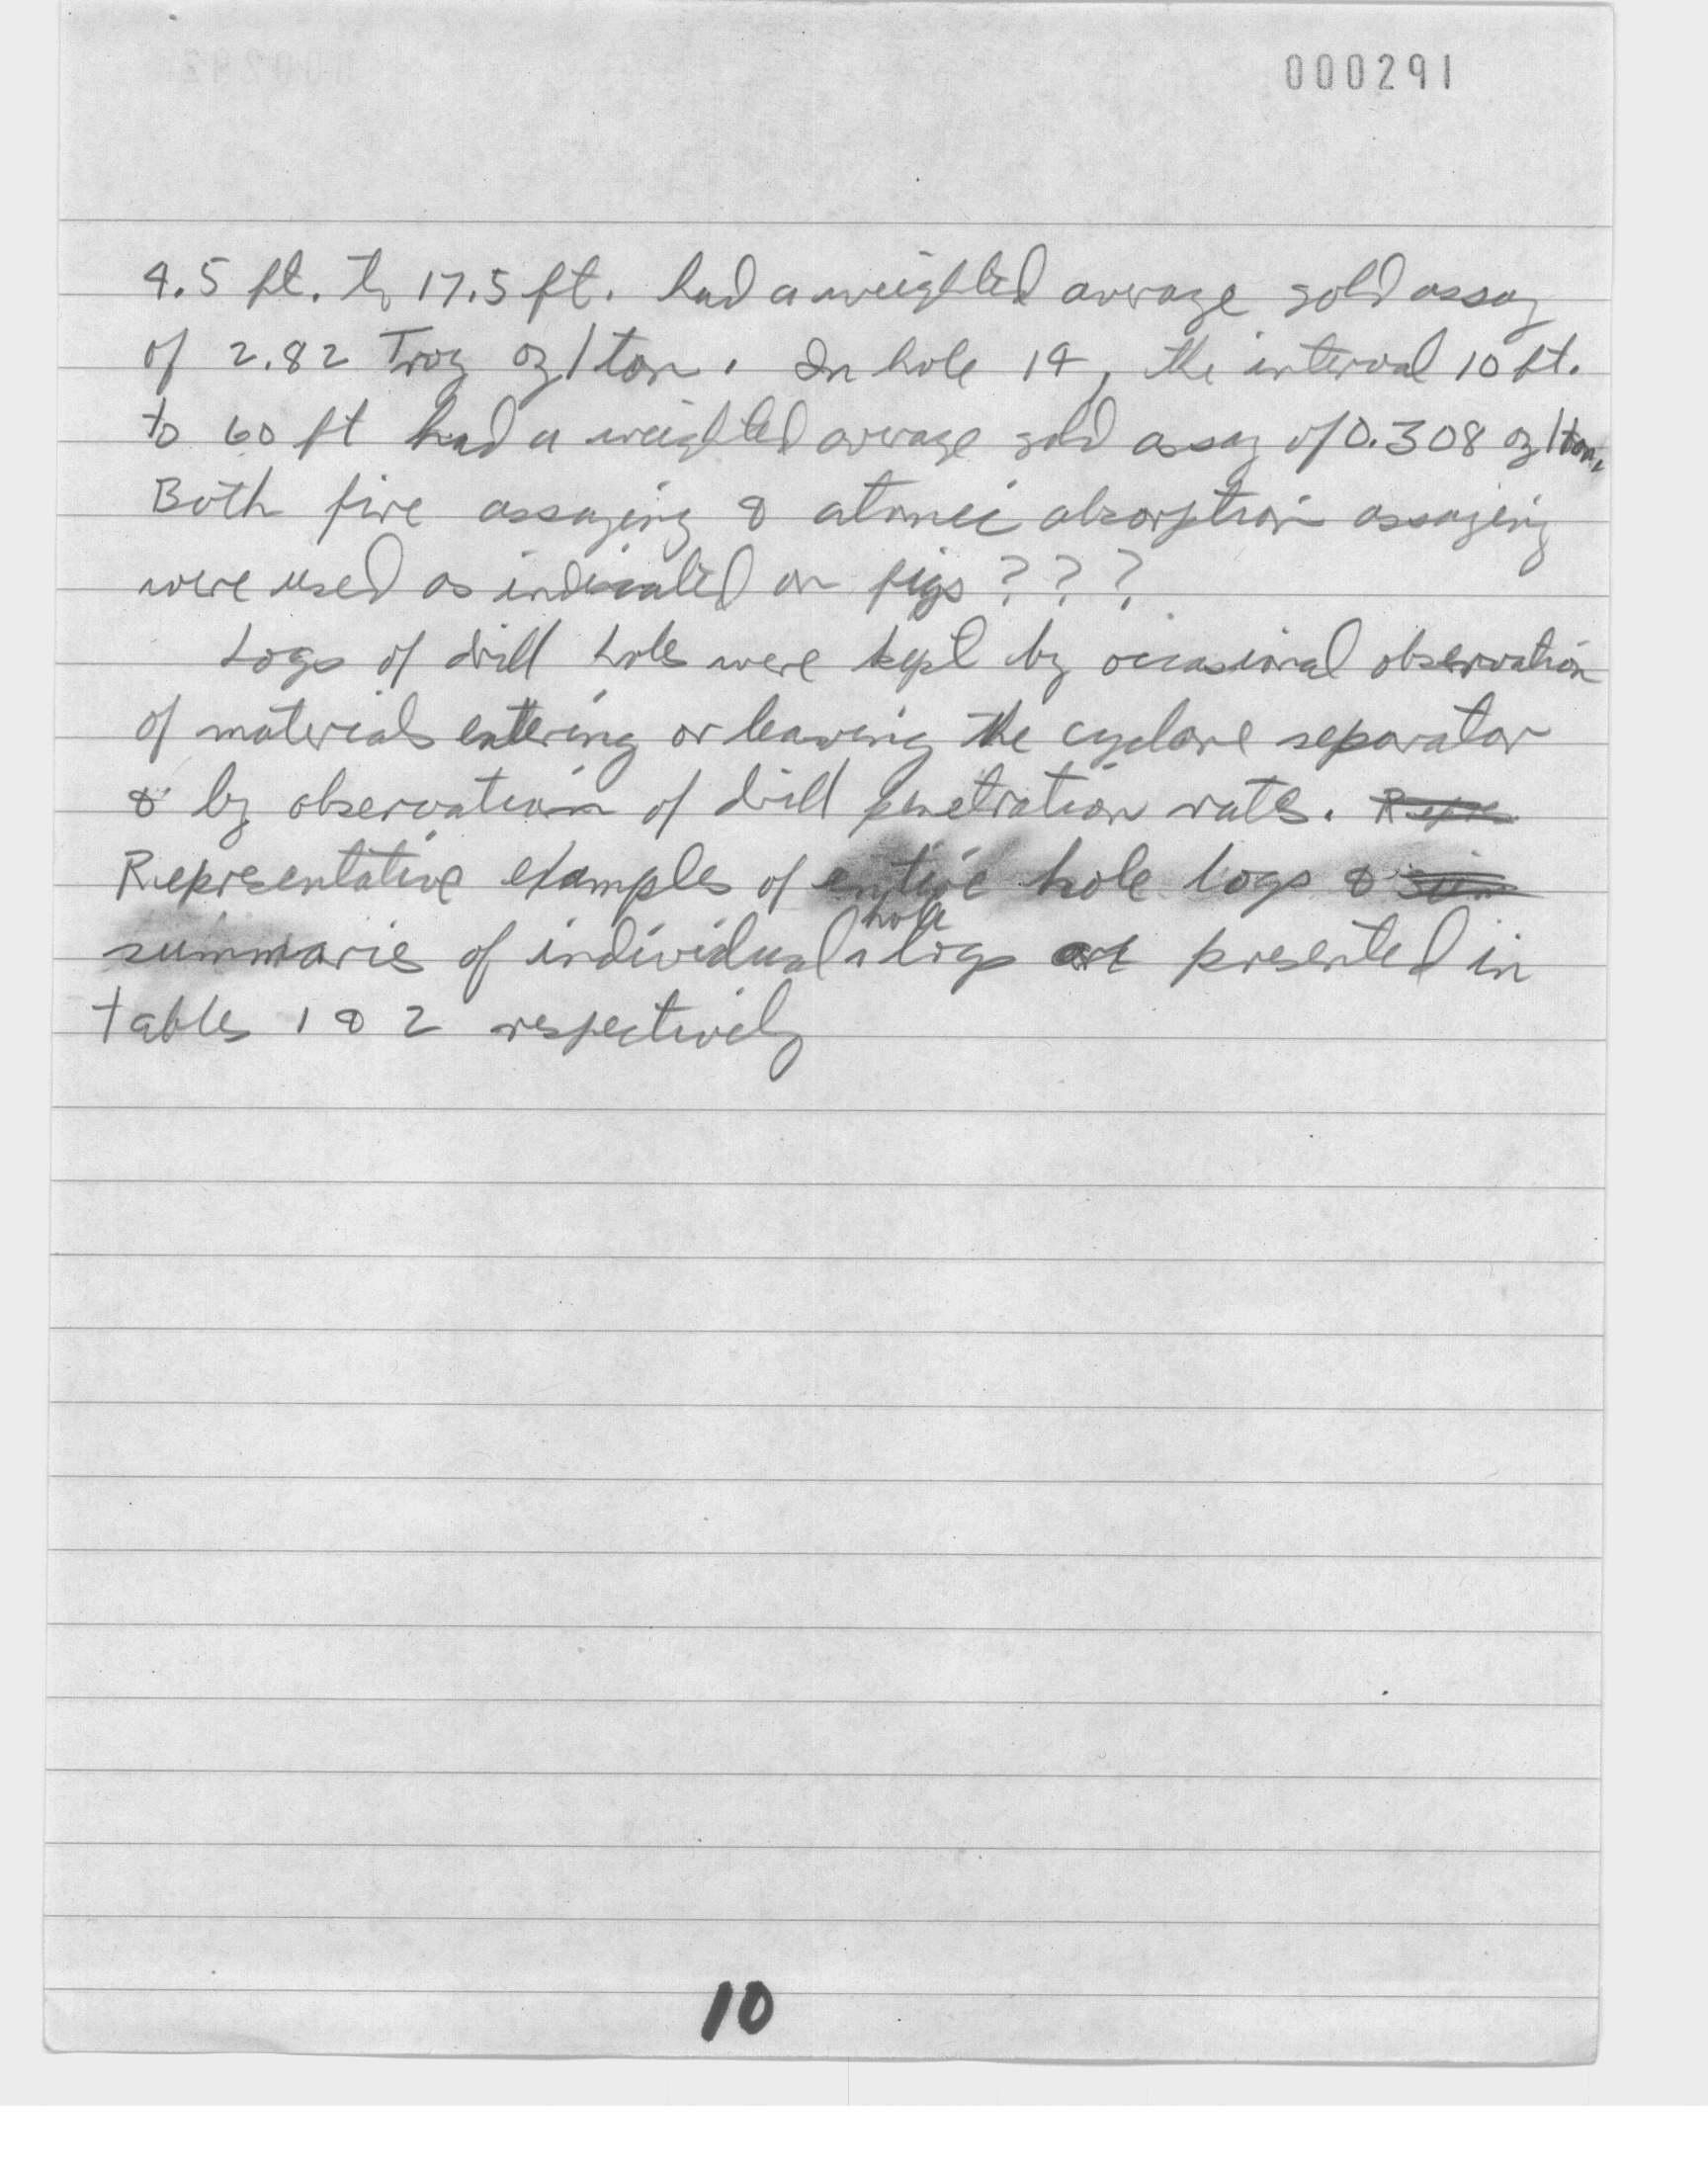 000291
4.5 ft. to 17.5 ft. had a weighted average gold assay
of 2.82 Troy oz/ton. In hole 14, the interval 10 ft.
to 60 ft had a weighted average gold assay of 0.308 oz/ton.
Both fire assaying & atomic absorption assaying
were used as indicated on figs ? ? ?
Logs of drill holes were kept by occasional observation
of materials entering or leaving the cyclone separator
& by observation of drill penetration rates. Repre
Representative examples of entire hole logs & sum
summaries of individual hole logs are presented in
tables 1 & 2 respectively
10